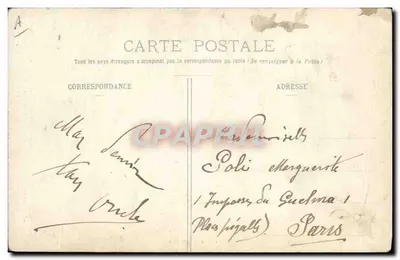 A
CARTE POSTALE
Tous les pays étrangers n'acceptent pas la correspondance au recto (Se renseigner à la Poste)
CORRESPONDANCE
ADRESSE
CPAPHIL
Mademoiselle
Poli Marguerite
1 Impasse du Guelma 1
Place pigalle)
Paris